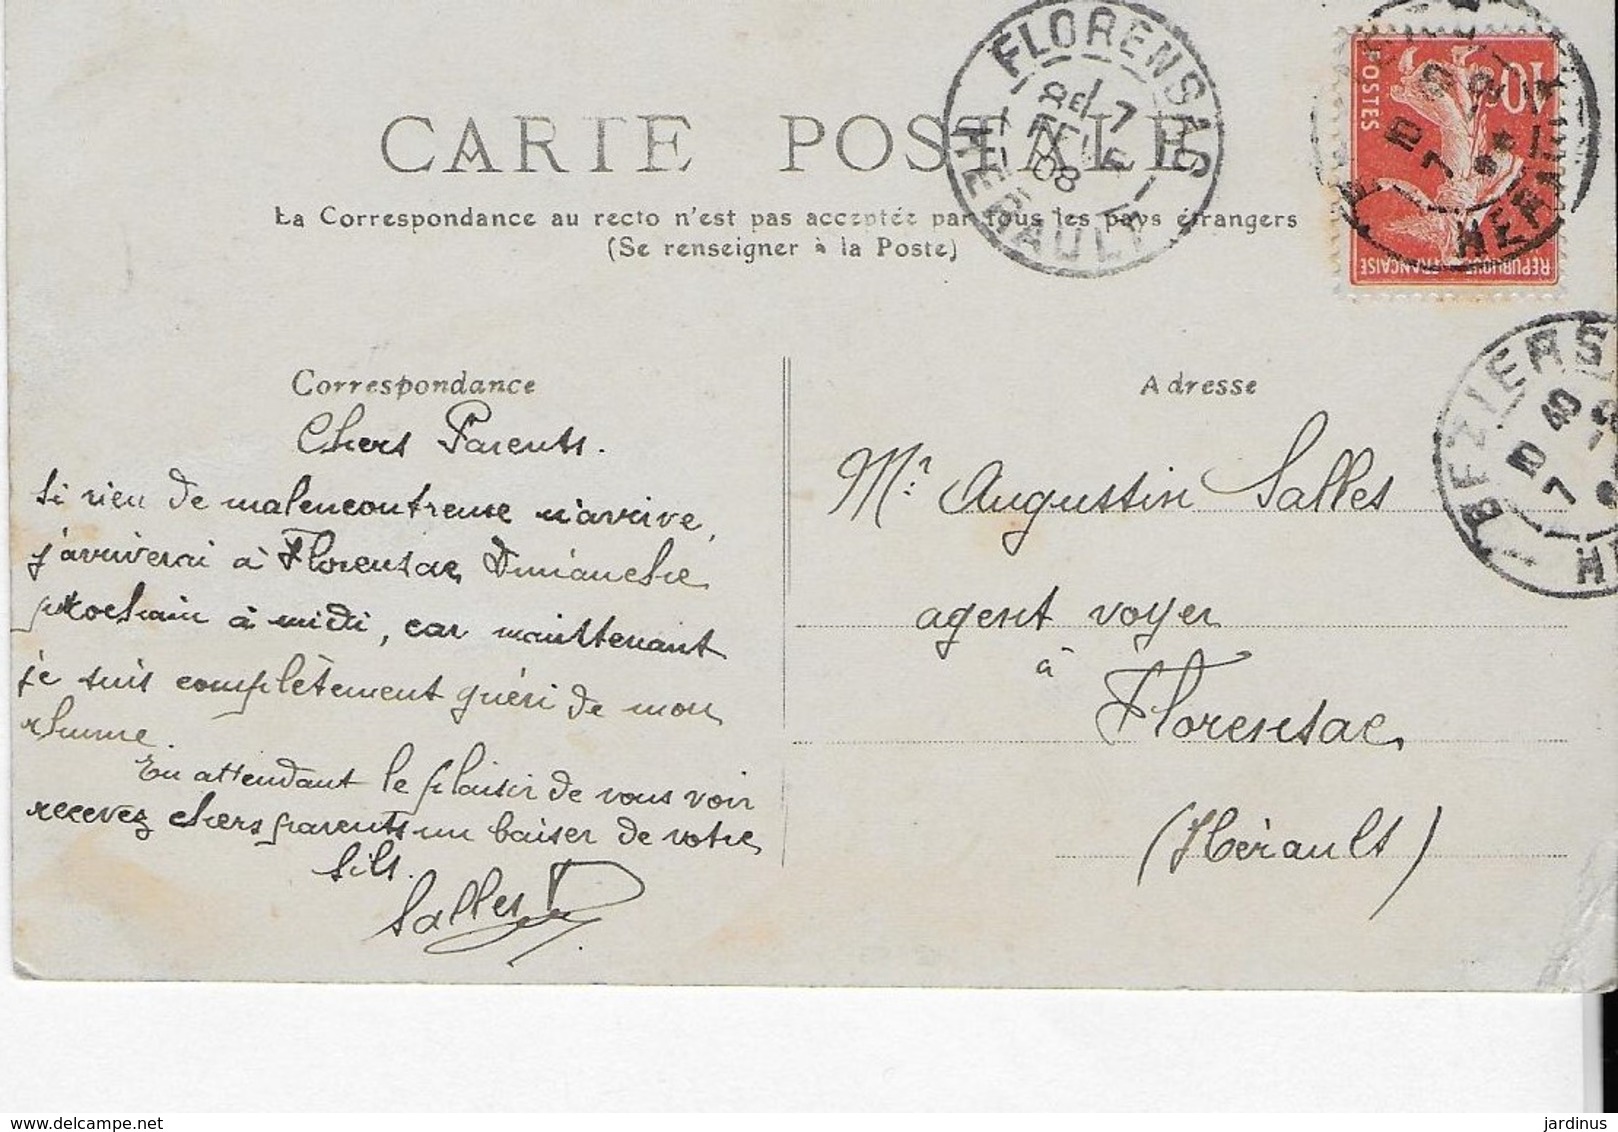 CARTE POSTALE
La Correspondance au recto n'est pas acceptée par tous les pays étrangers
(Se renseigner à la Poste)
FLORENSAC
7
08
HERAULT
10
POSTES
REPUBLIQUE FRANÇAISE
HERAULT
BEZIERS
10 40
7
Correspondance
Chers Parents.
Si rien de malencontreuse n'arrive,
j'arriverai à Florensac Dimanche
prochain à midi, car maintenant
je suis complètement guéri de mon
rhume.
En attendant le plaisir de vous voir
recevez chers parents un baiser de votre
fils.
Salles
Adresse
Mr. Augustin Salles
agent voyer
à
Florensac
(Hérault)
jardinus